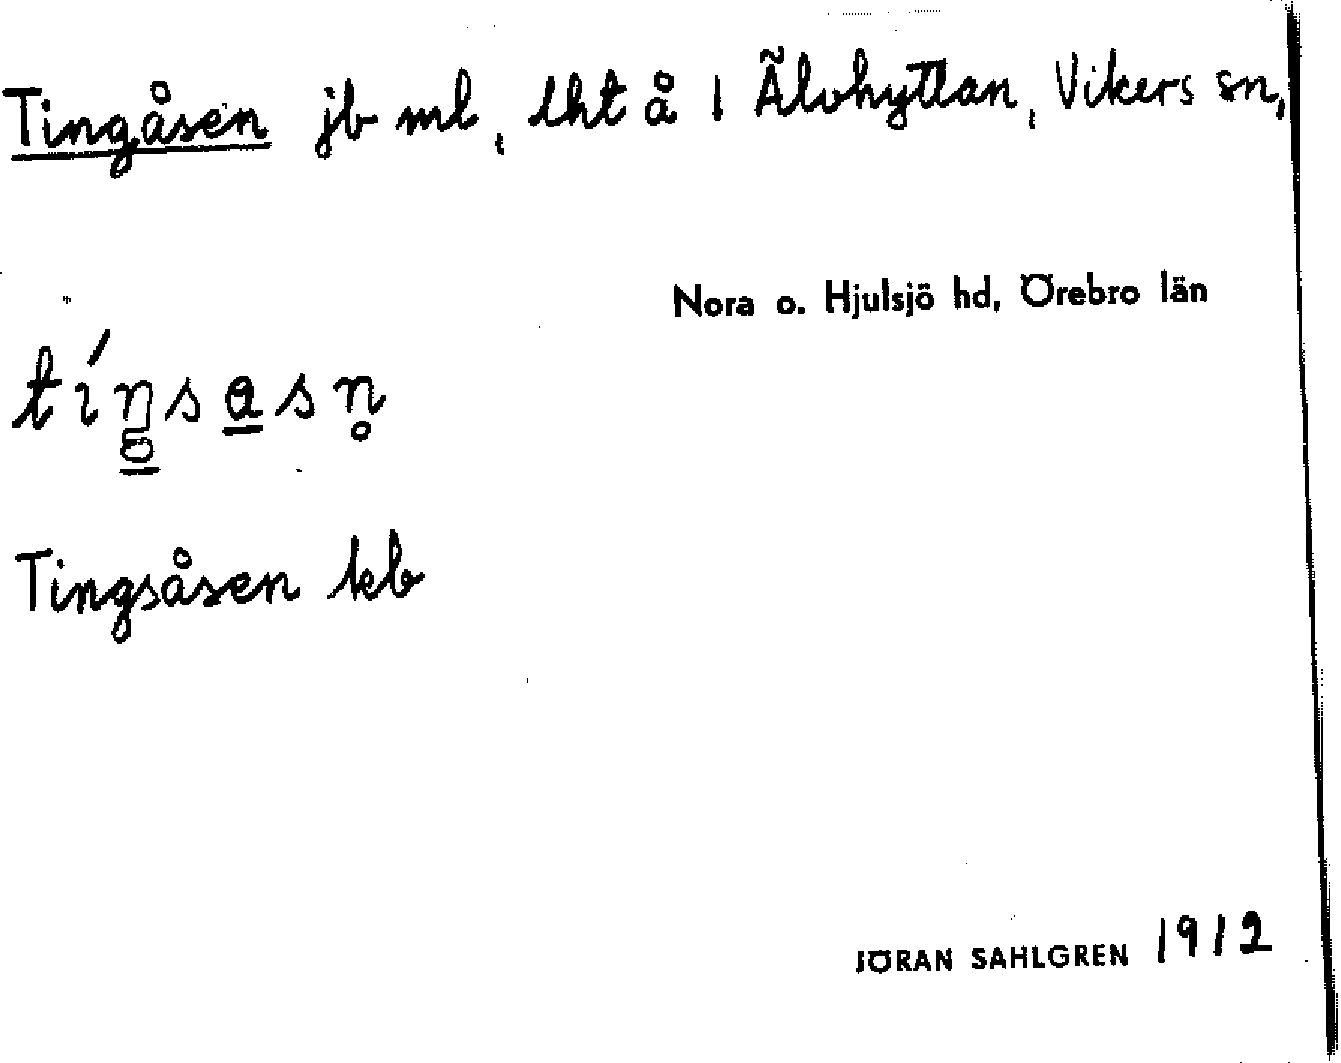 Tingåsen jb ml, lht å 1 Älvhyttan, Vikers sn,
Nora o. Hjulsjö hd, Örebro län
Tingsåsen kb
JÖRAN SAHLGREN 1912